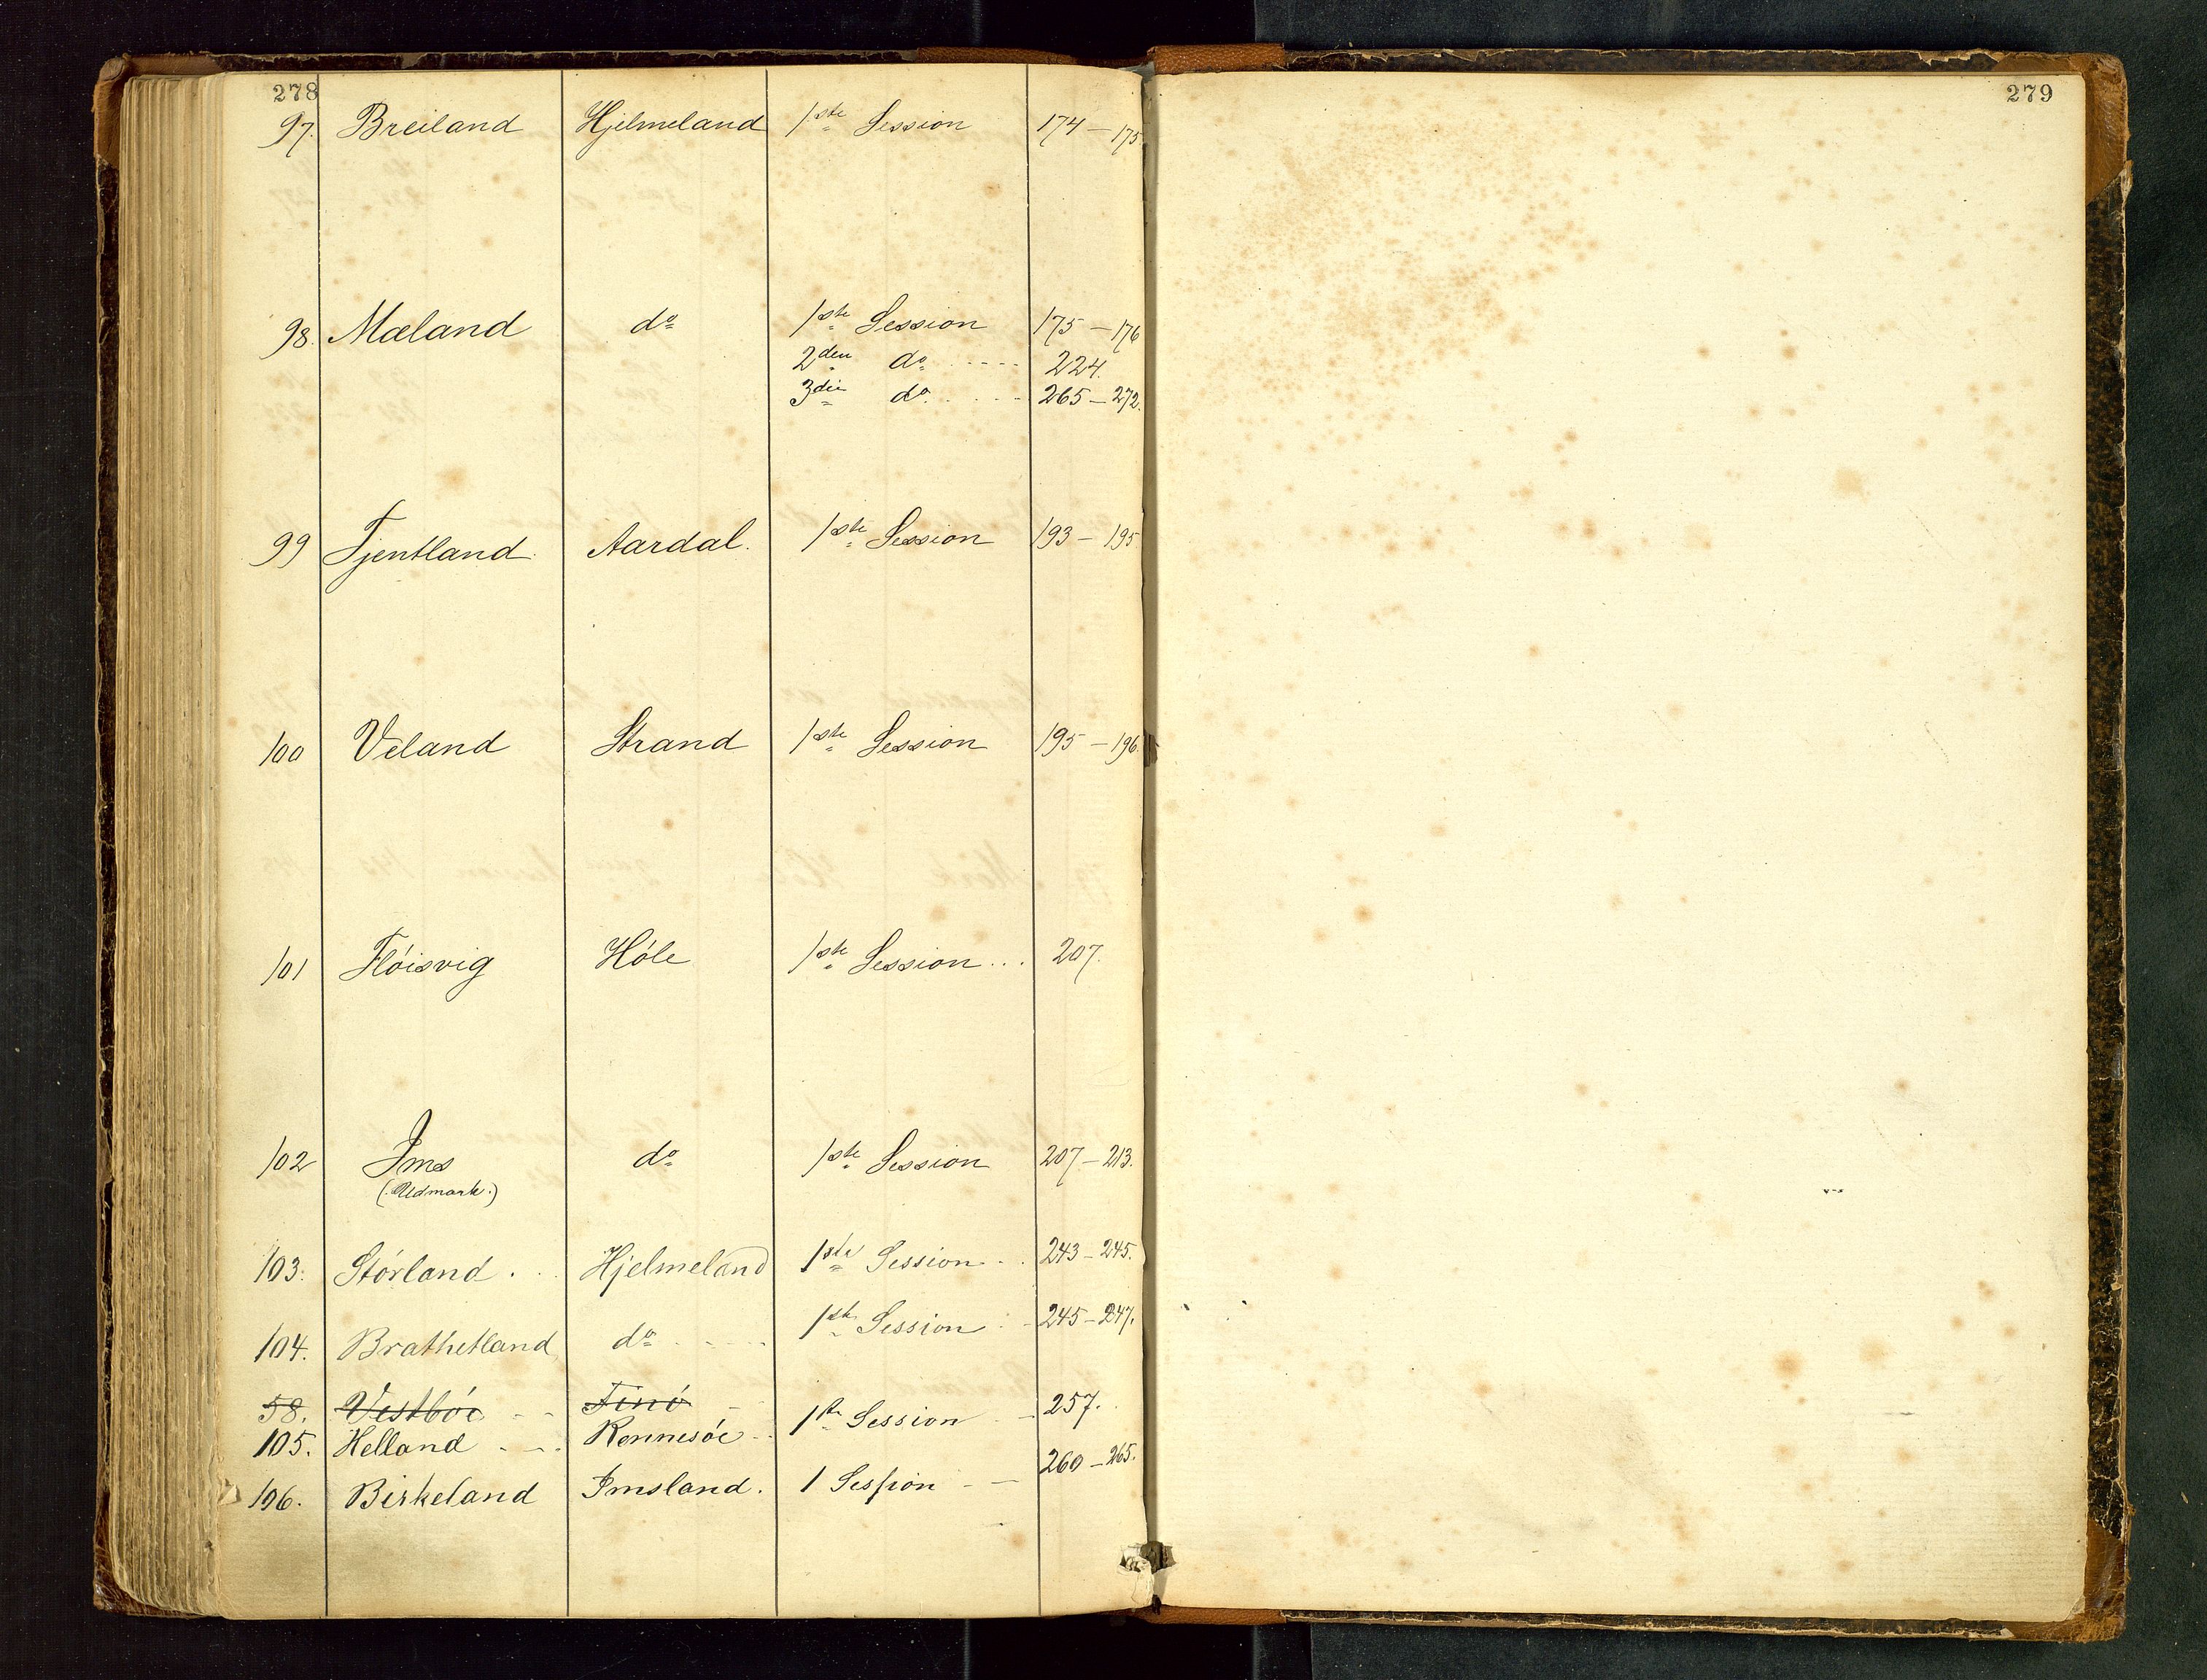 278
97. Breiland Hjelmeland 1ste Session 174 - 175
98. Mæland do 1ste Session 175 - 176
2den do 224.
3die do 265 - 272.
99 Tjentland. Aardal. 1ste Session 193 - 195
100 Veland Strand 1ste Session 195 - 196.
101 Flóisvig Hóle 1ste Session ... 207.
102 Ims do 1ste Session 207 - 213.
(Udmark.)
103. Stórland . . Hjelmeland 1ste Session . . 243 - 245.
104. Brathetland do 1ste Session 245 - 247.
58. Vestbóe Finó
105. Helland Rennesóe 1ste Session 257.
106. Birkeland Imsland. 1 Session 260 - 265.
279